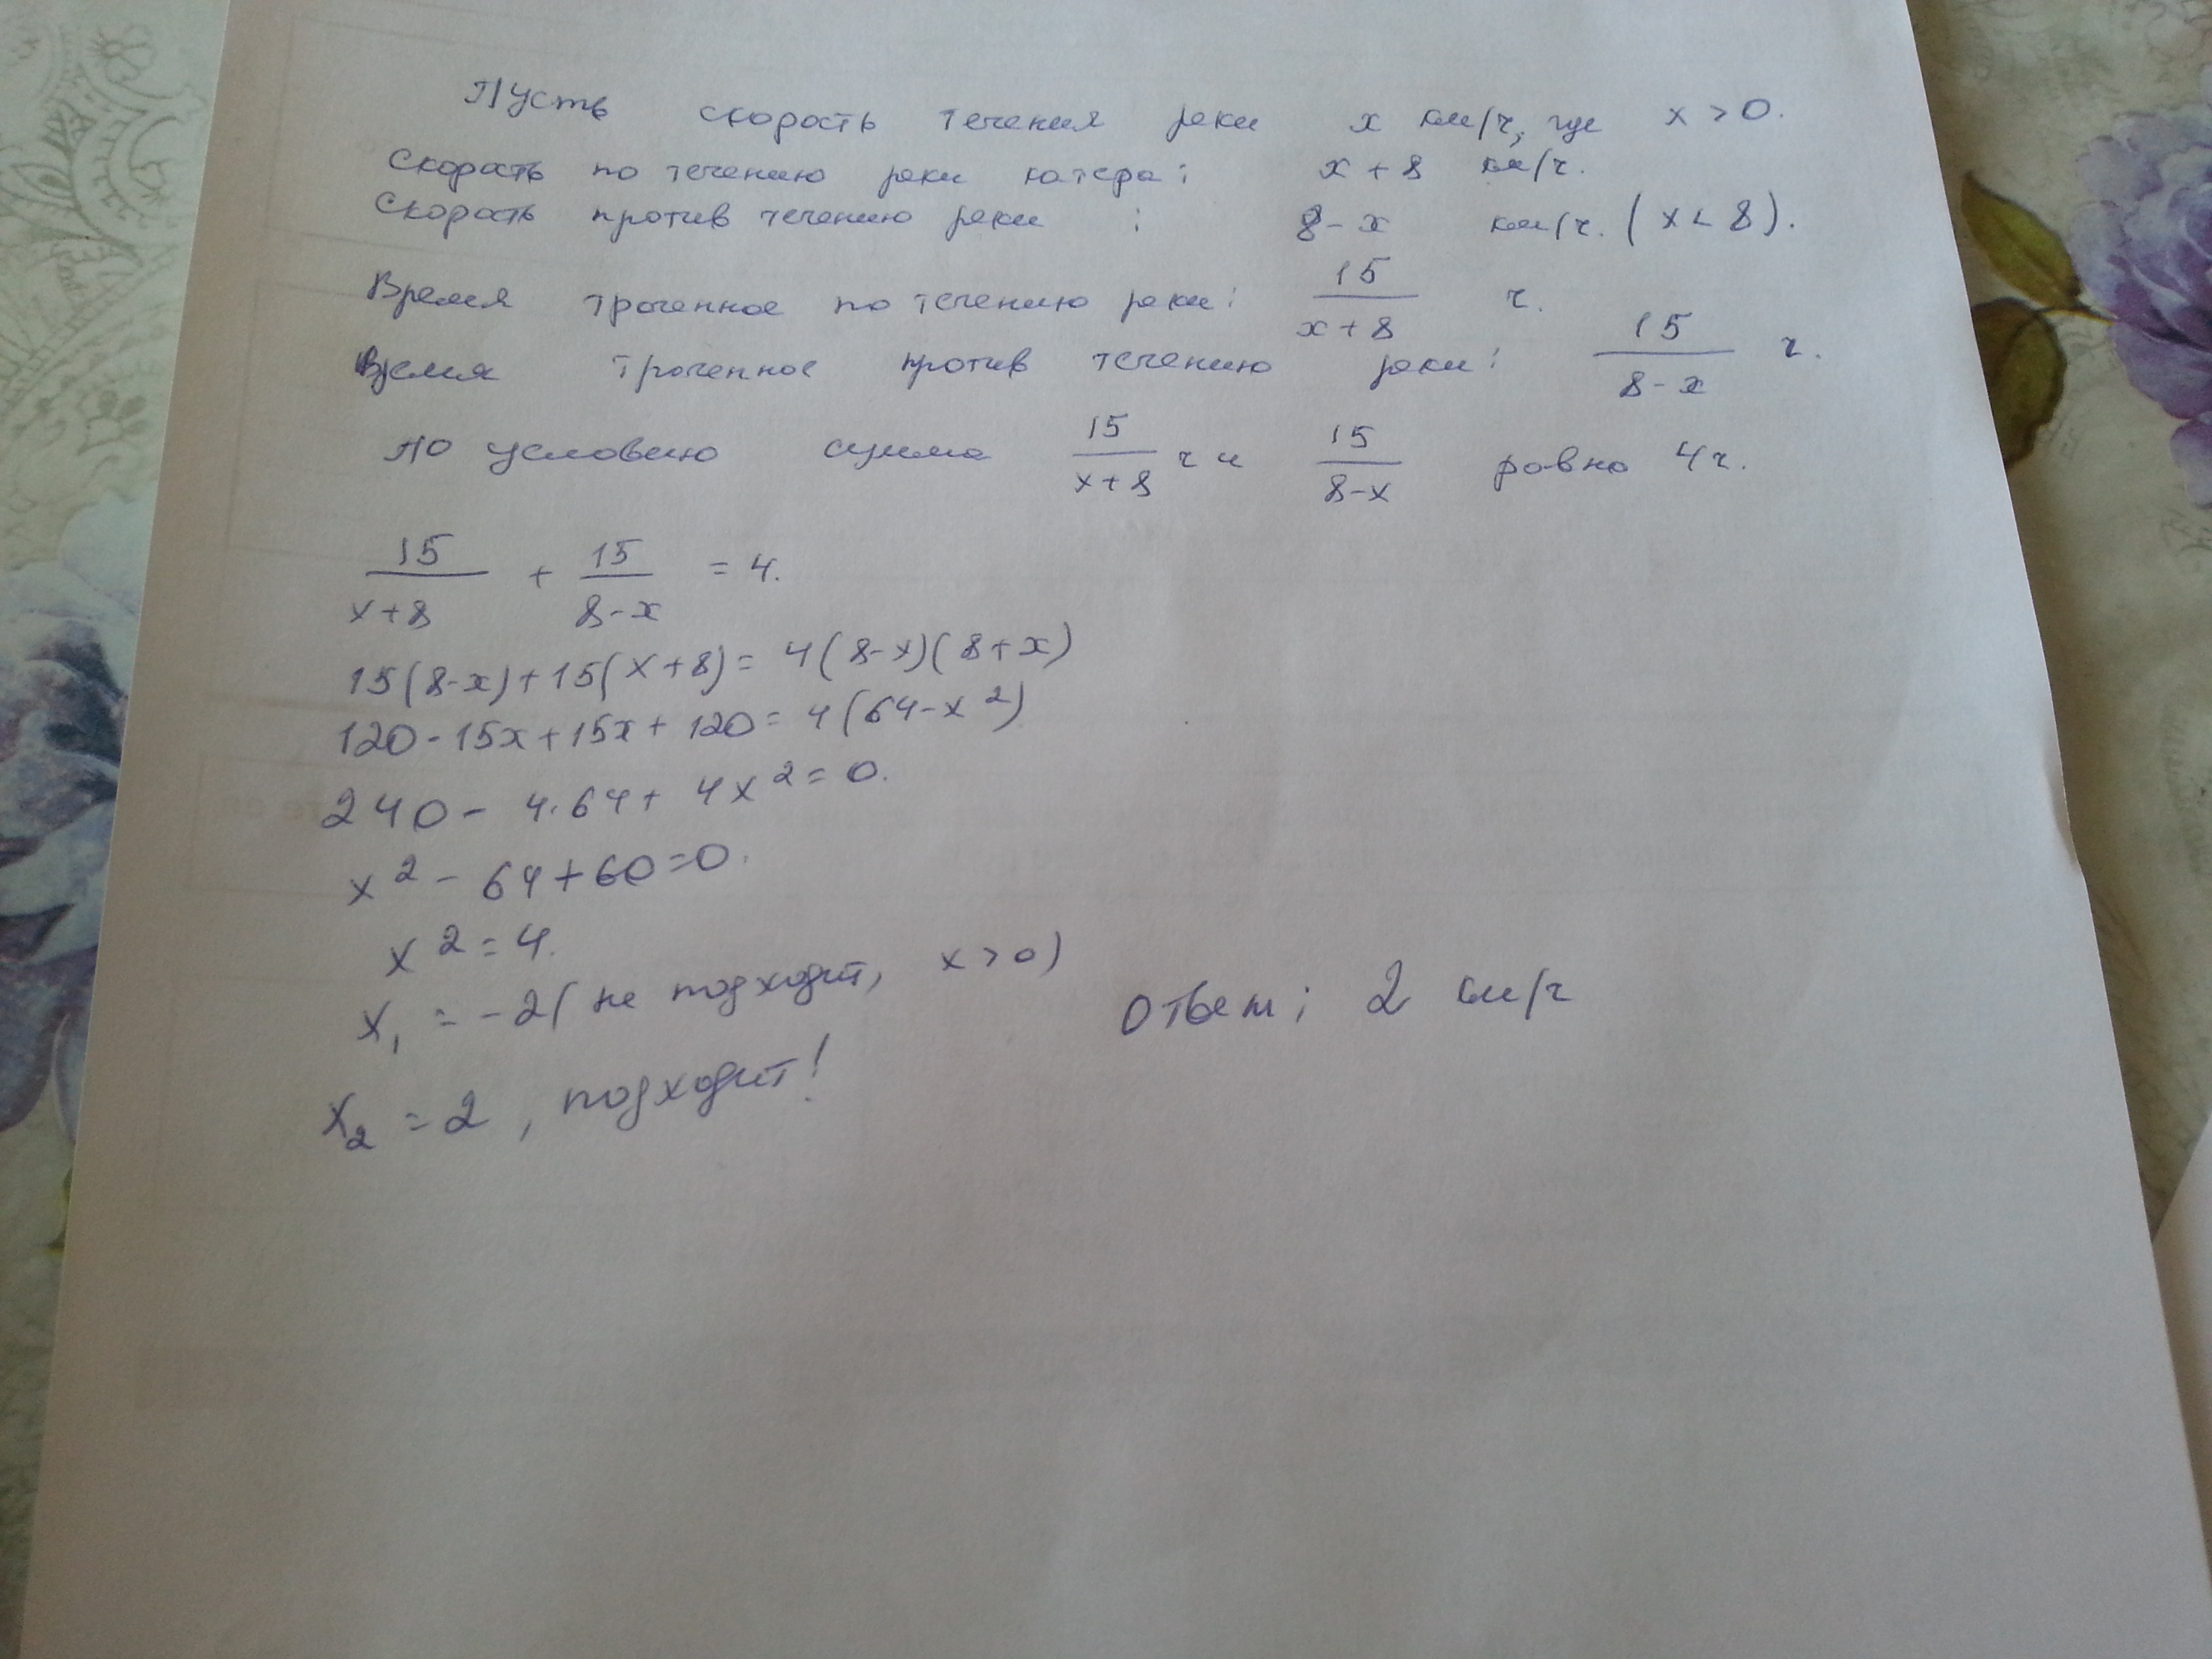 Пусть скорость течения реки x км/ч, где x > 0.
Скорость по течению реки катера: x + 8 км/ч.
Скорость против течению реки : 8 - x км/ч. ( x < 8 ).
Время траченное по течению реки: 15/(x+8) ч.
Время траченное против течению реки: 15/(8-x) ч.
По условию сумма 15/(x+8) ч и 15/(8-x) равно 4ч.
15/(x+8) + 15/(8-x) = 4.
15(8-x)+15(x+8)= 4(8-x)(8+x)
120-15x+15x+120= 4(64-x²)
240- 4·64+ 4x²=0.
x²- 64+60=0.
x²=4.
x₁ = -2( не подходит, x > 0)
x₂ = 2 , подходит!
Ответ: 2 км/ч